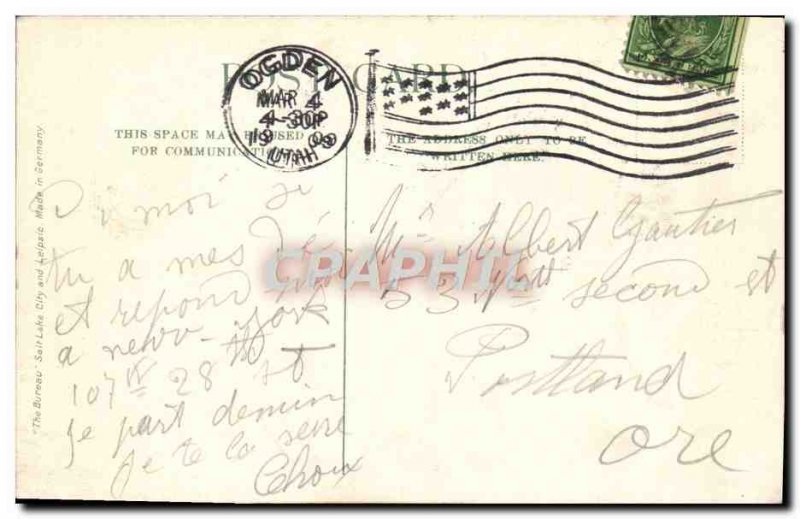 POST CARD
OGDEN
MAR 4
4-30P
1909
UTAH
THIS SPACE MAY BE USED
FOR COMMUNICATION
THE ADDRESS ONLY TO BE
WRITTEN HERE.
"The Bureau" Salt Lake City and Leipsic Made in Germany
Di moi si
tu a mes
et repond
a new-york
107 W 28th st
je part demin
je te la serre
Choux
Mr Albert Gautier
second st
Portland
Ore
CPAPHIL